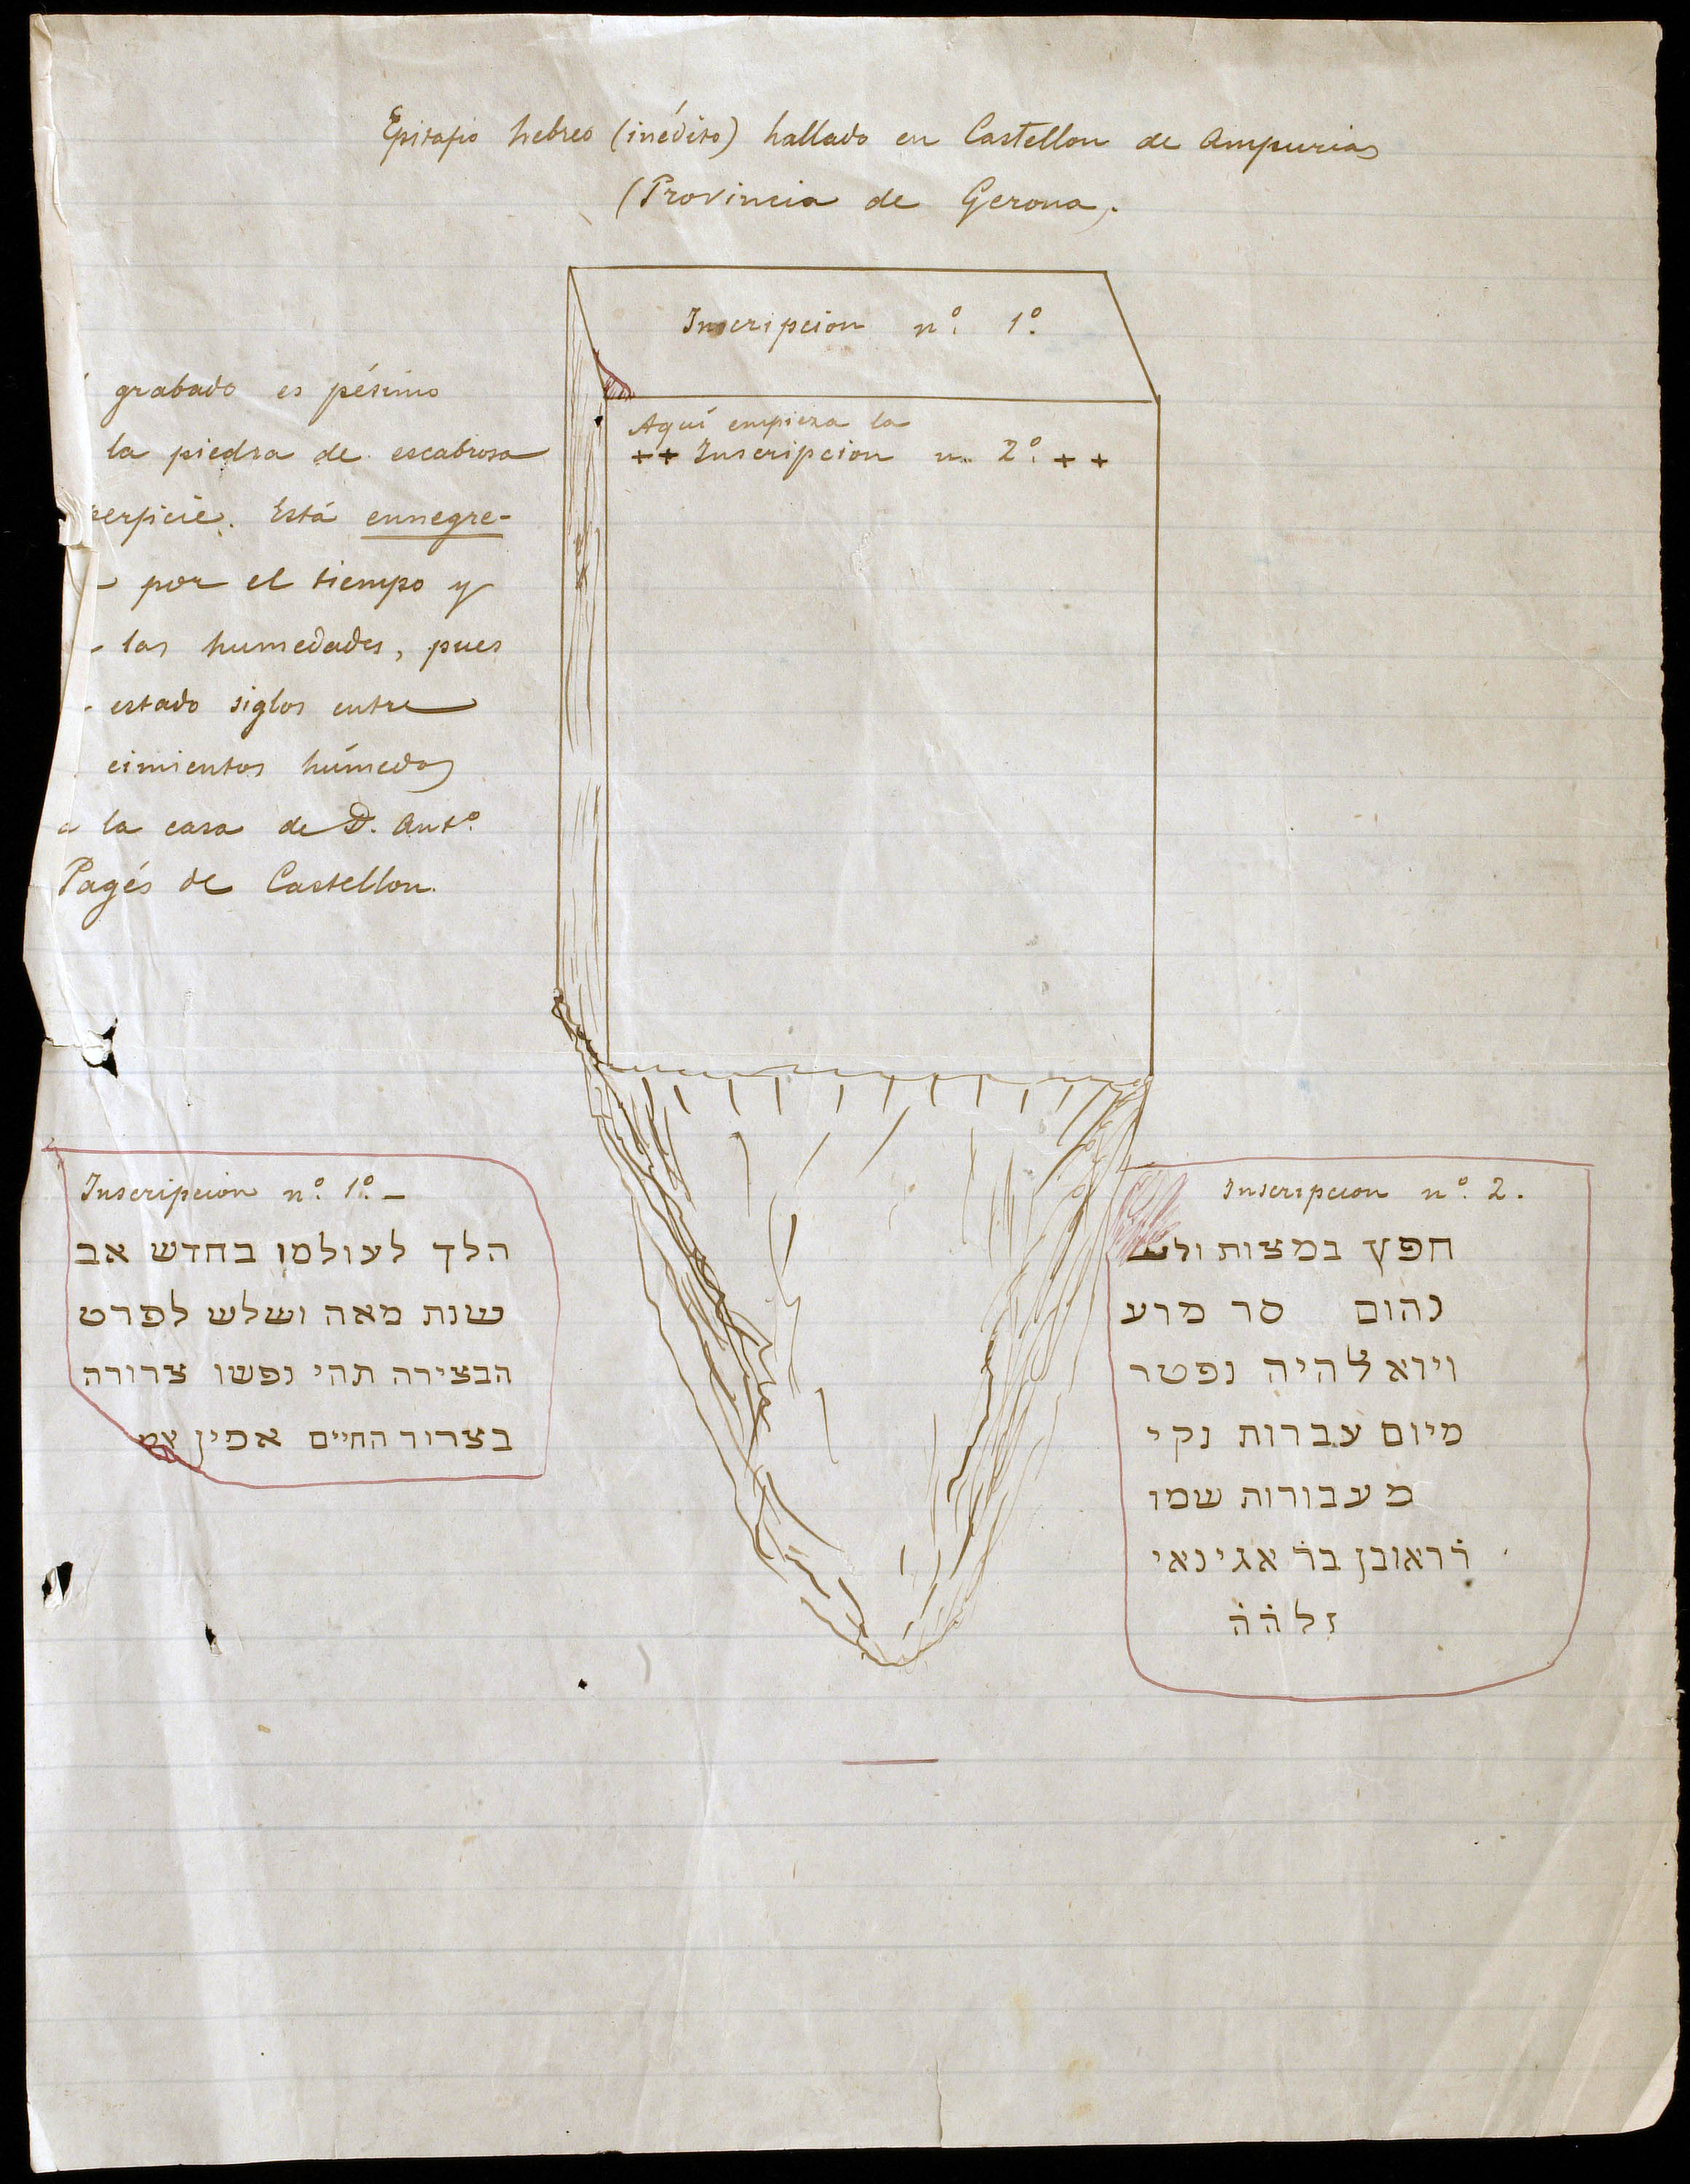 Epitafio hebreo (inédito) hallado en Castellon de Ampurias
(Provincia de Gerona).
Inscripcion nº. 1º.
Aquí empieza la
++ Inscripcion n.. 2º. ++
grabado es pésimo
la piedra de escabrosa
perficie. Está ennegre-
por el tiempo y
las humedades, pues
estado siglos entre
cimientos húmedos
la casa de D. Antº.
Pagés de Castellon.
Inscripcion nº. 1º. –
הלך לעולמו בחדש אב
שנת מאה ושלש לפרט
הבצירה תהי נפשו צרורה
בצרור החיים אמין
Inscripcion nº. 2.
חפץ במצות ולש
נהום סר מרע
ויוא להיה נפטר
מיום עברות נקי
מעבורות שמו
ר̇ראובן בר̇ אגינאי
זלה̇ה̇